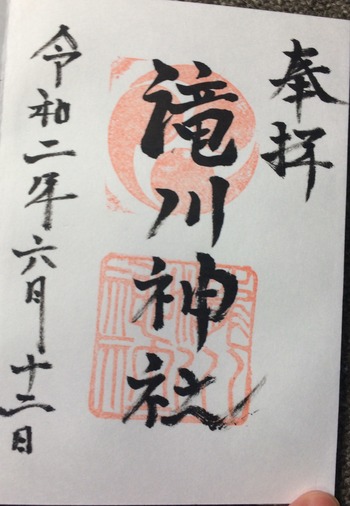 奉拝
滝川神社
令和二年六月十二日